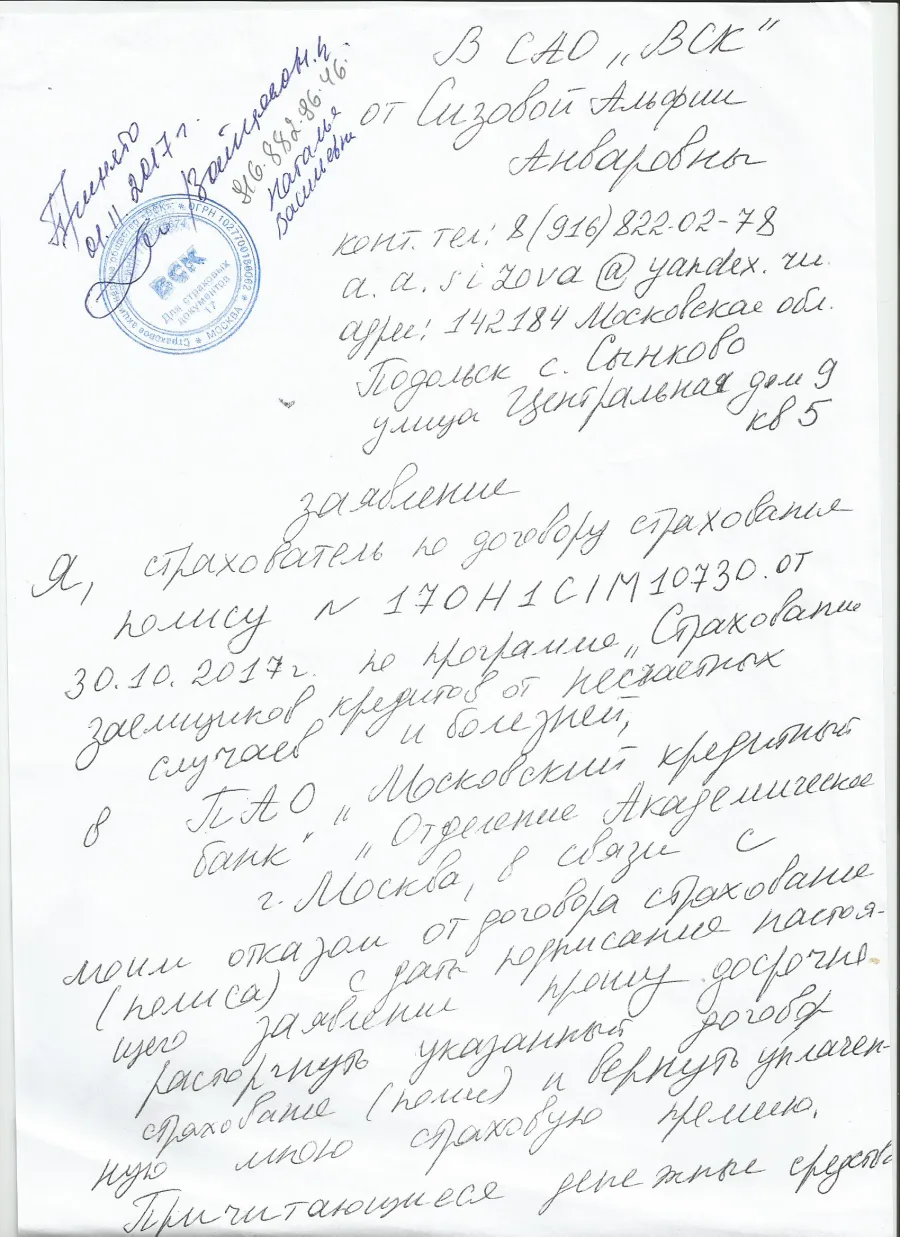 В САО „ВСК"
от Сизовой Альфии
Анваровны
конт. тел: 8(916)822-02-78
a.a.sizova@yandex.ru.
адрес: 142184 Московская обл.
Подольск с. Сынково
улица Центральная дом 9
кв 5
Принято
01.11.2017г.
916-882-96-46.
Наталья
Васильевна
Страховое акционерное общество «ВСК» * ОГРН 1027700186062 * МОСКВА *
ВСК
Для страховых
документов
17
заявление
Я, страхователь по договору страхования
полису N 170H1CIM10730. от
30.10.2017г. по программе „Страхование
заемщиков кредитов от несчастных
случаев и болезней,
в ПАО „Московский кредитный
банк" „Отделение Академическое
г. Москва, в связи с
моим отказом от договора страхование
(полиса) с даты подписание настоя-
щего заявления прошу досрочно
расторгнуть указанный договор
страхование (полис) и вернуть уплачен-
ную мною страховую премию.
Причитающиеся денежные средства